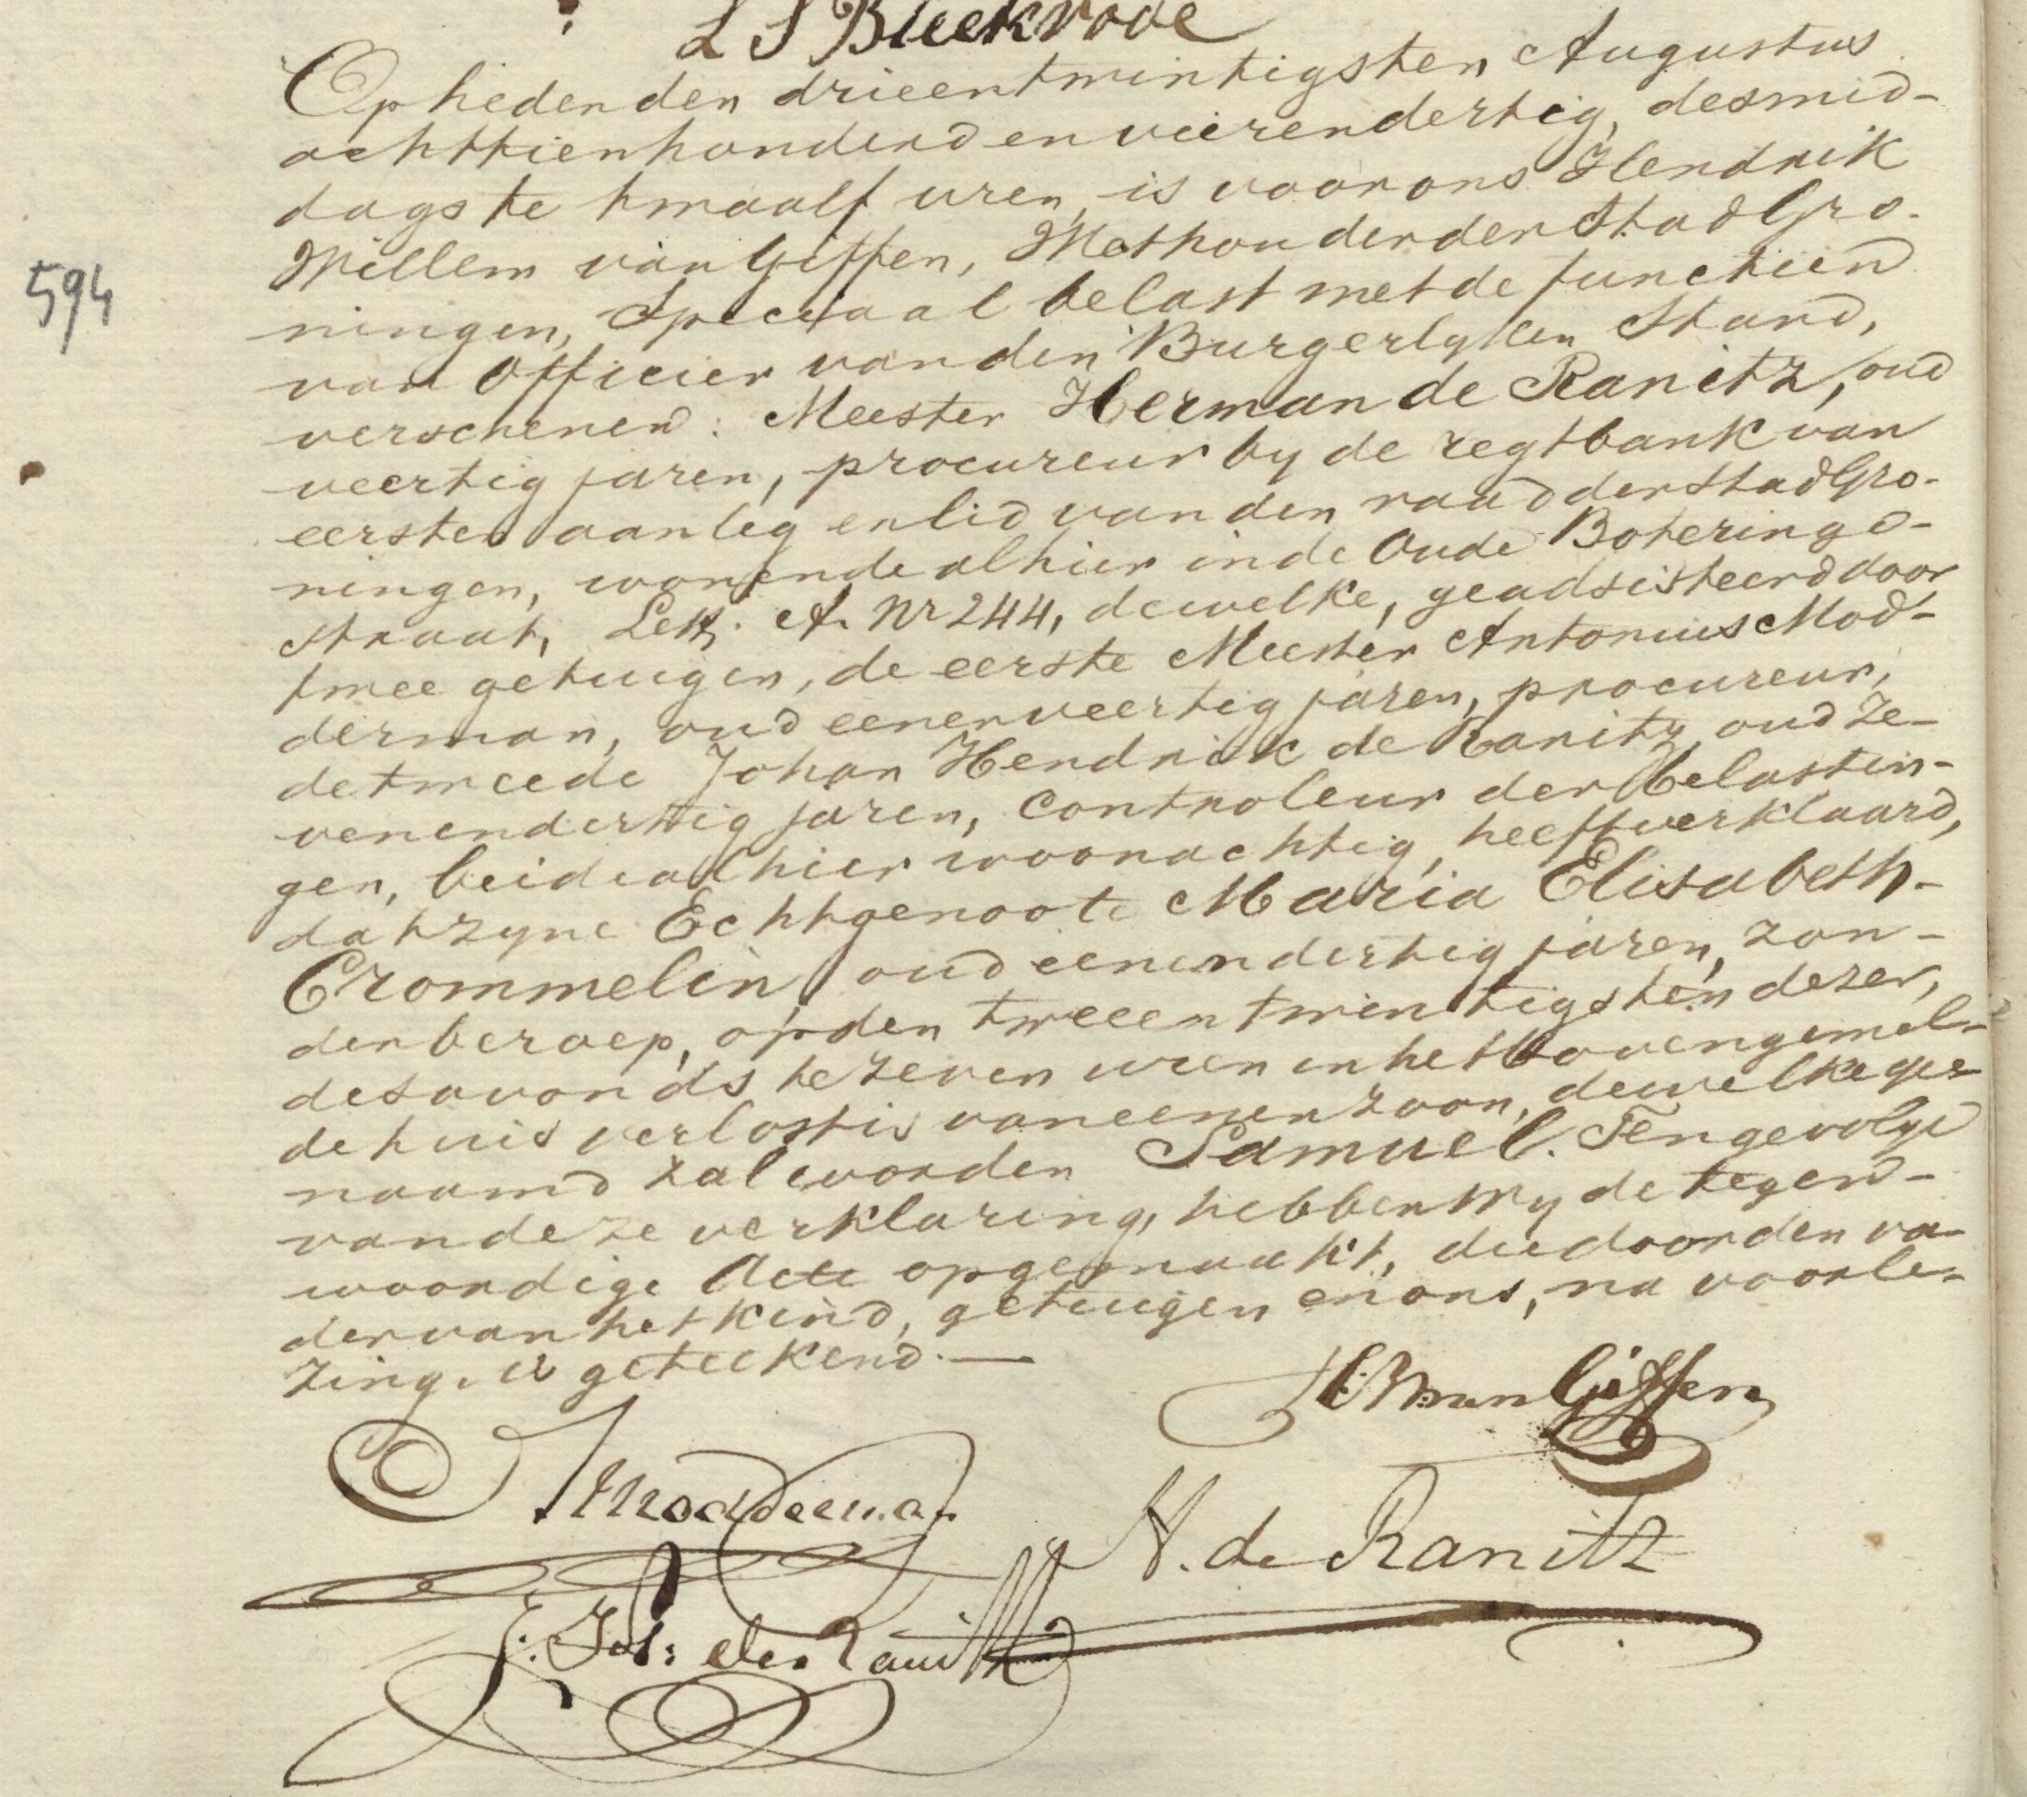 L S Bleekrode
Op heden den drieentwintigsten Augustus
achttienhonderd en vierendertig, des mid-
dags te twaalf uren, is voor ons Hendrik
Willem van Giffen, Wethouder der Stad Gro-
ningen, Speciaal belast met de functiën
van Officier van den Burgerlyken Stand,
verschenen: Meester Herman de Ranitz, oud
veertig jaren, procureur by de regtbank van
eersten aanleg en lid van den raad der Stad Gro-
ningen, wonende alhier in de Oude Boteringe-
straat, Lett. A. Nr 244, dewelke, geadsisteerd door
twee getuigen, de eerste Meester Antonius Mod-
derman, oud eenenveertig jaren, procureur,
de tweede Johan Hendrik de Ranitz oud ze-
venendertig jaren, Controleur der belastin-
gen, beide alhier woonachtig, heeft verklaard,
dat zyne Echtgenoote Maria Elisabeth
Crommelin oud eenendertig jaren, zon-
der beroep, op den tweeentwintigsten dezer,
des avonds te zeven uren in het bovengemel-
de huis verlost is van eenen zoon, dewelke ge-
naamd zal worden Samuel. Ten gevolge
van deze verklaring, hebben wy de tegen-
woordige Acte opgemaakt, die door den va-
der van het kind, getuigen en ons, na voorle-
zing, is geteekend.—
594
HW van Giffen
Modderman
H. de Ranitz
J. H. de Ranitz